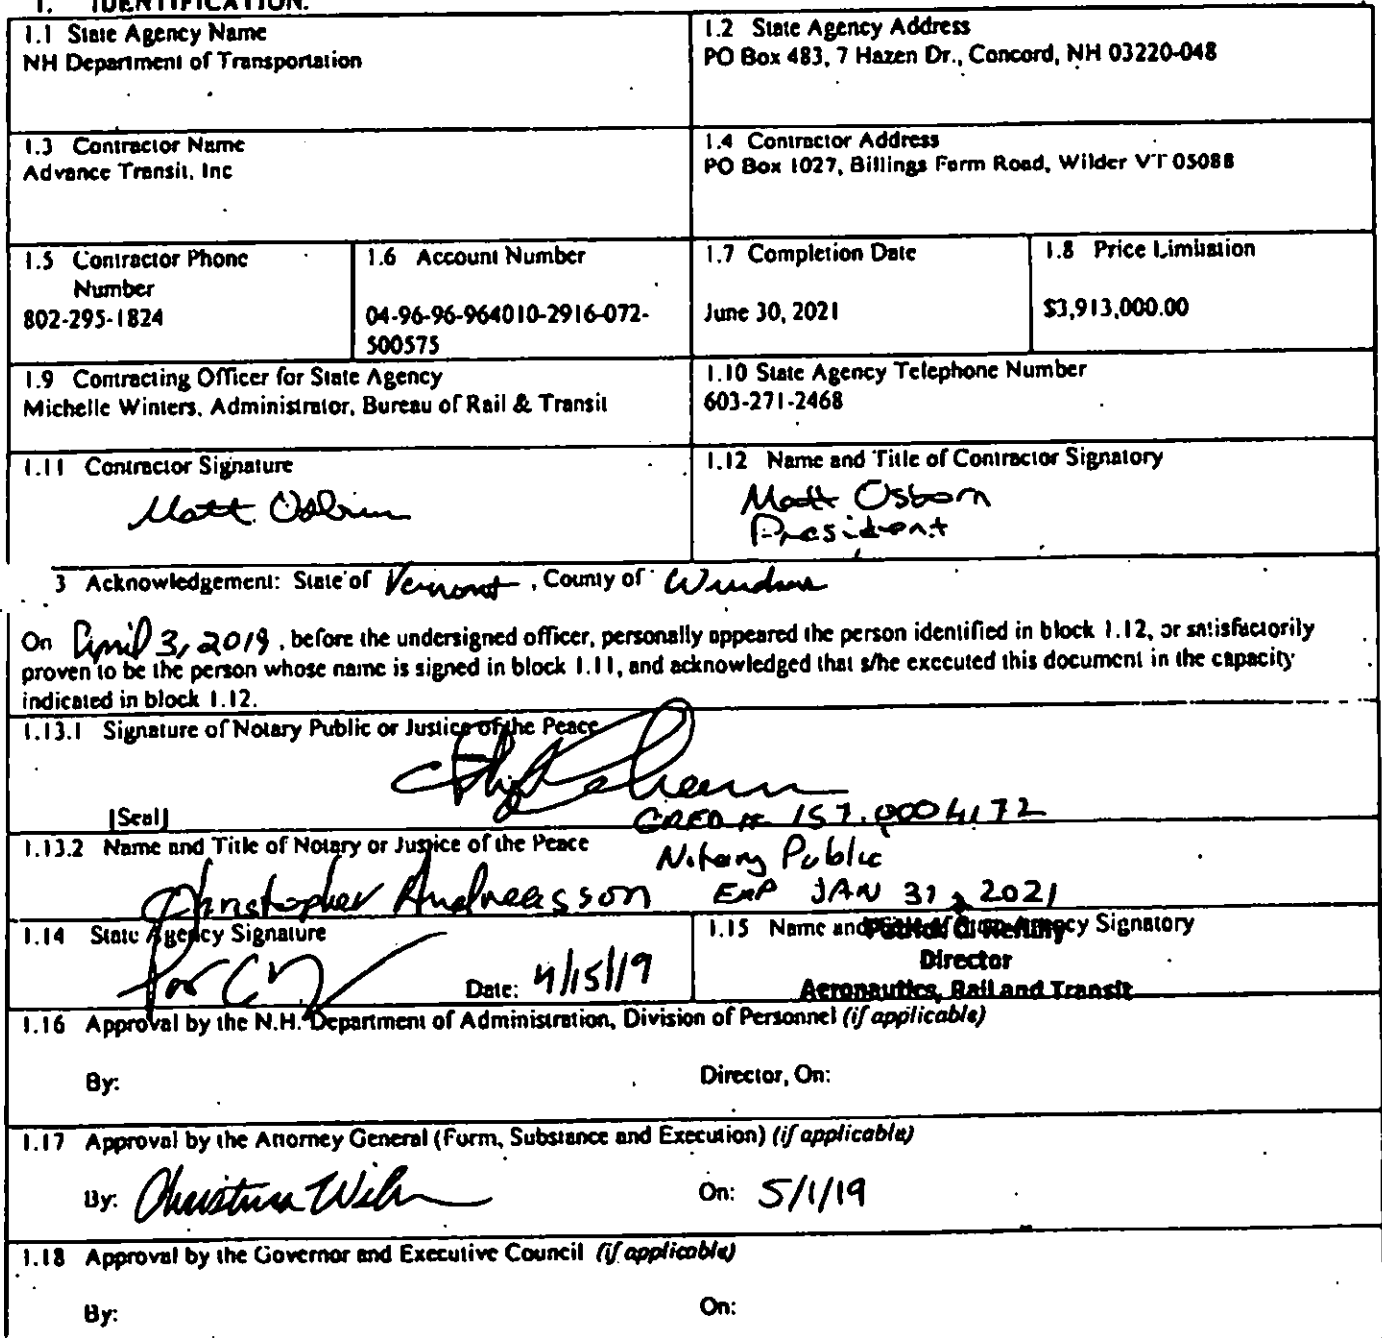 1. IDENTIFICATION.
1.1 State Agency Name
NH Department of Transportation
1.2 State Agency Address
PO Box 483, 7 Hazen Dr., Concord, NH 03220-048
1.3 Contractor Name
Advance Transit, Inc
1.4 Contractor Address
PO Box 1027, Billings Farm Road, Wilder VT 05088
1.5 Contractor Phone
Number
802-295-1824
1.6 Account Number
04-96-96-964010-2916-072-
500575
1.7 Completion Date
June 30, 2021
1.8 Price Limitation
$3,913,000.00
1.9 Contracting Officer for State Agency
Michelle Winters, Administrator, Bureau of Rail & Transit
1.10 State Agency Telephone Number
603-271-2468
1.11 Contractor Signature
Matt Osborn
1.12 Name and Title of Contractor Signatory
Matt Osborn
President
3 Acknowledgement: State of Vermont, County of Windsor
On April 3, 2019, before the undersigned officer, personally appeared the person identified in block 1.12, or satisfactorily
proven to be the person whose name is signed in block 1.11, and acknowledged that s/he executed this document in the capacity
indicated in block 1.12.
1.13.1 Signature of Notary Public or Justice of the Peace
[Seal]
CRED # 157.0004172
1.13.2 Name and Title of Notary or Justice of the Peace
Notary Public
Christopher Andreasson EXP JAN 31, 2021
1.14 State Agency Signature
Date: 4/15/19
1.15 Name and Agency Signatory
Director
Aeronautics, Rail and Transit
1.16 Approval by the N.H. Department of Administration, Division of Personnel (if applicable)
By:
Director, On:
1.17 Approval by the Attorney General (Form, Substance and Execution) (if applicable)
By: Christina Wil
On: 5/1/19
1.18 Approval by the Governor and Executive Council (if applicable)
By:
On: